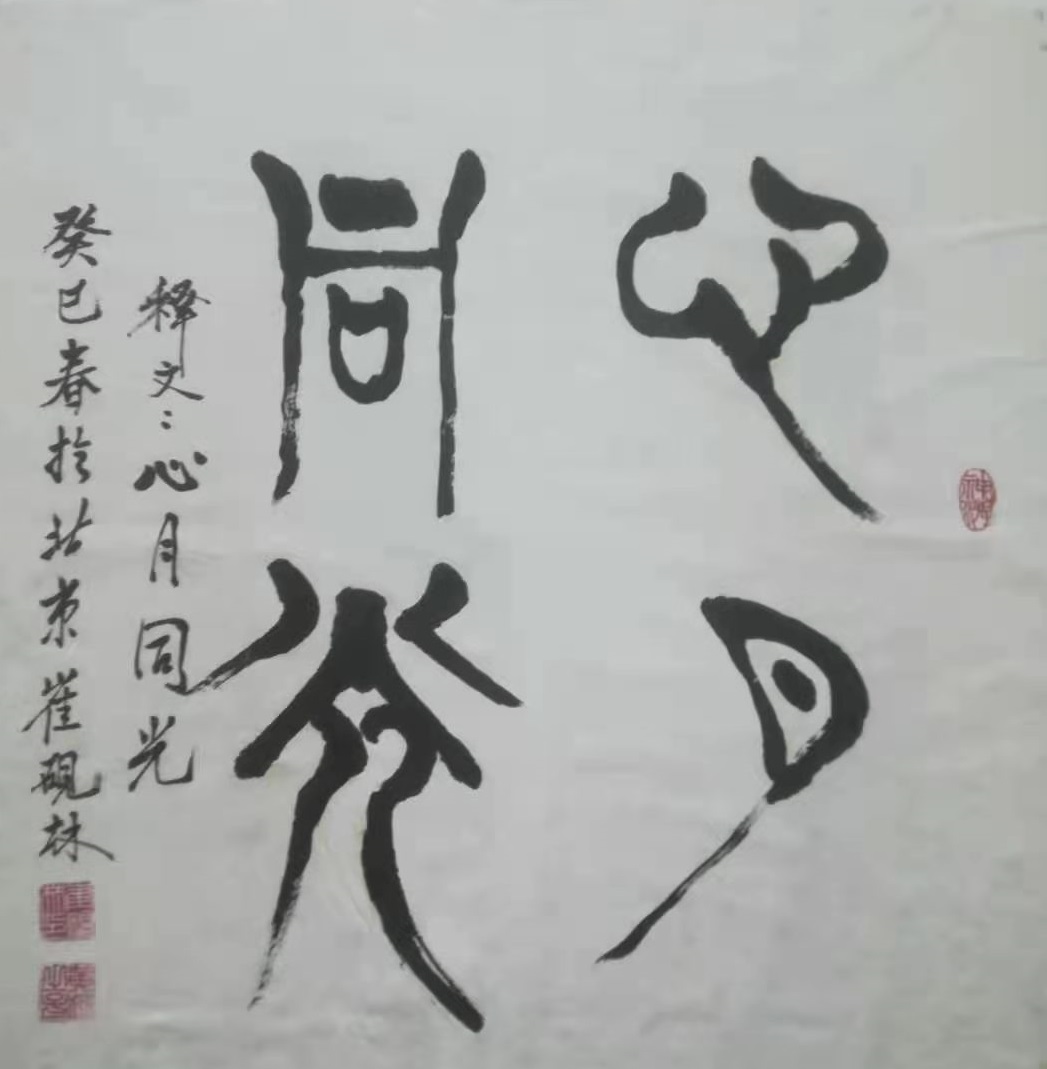 心月
同光
释文：心月同光
癸巳春於北京崔砚林